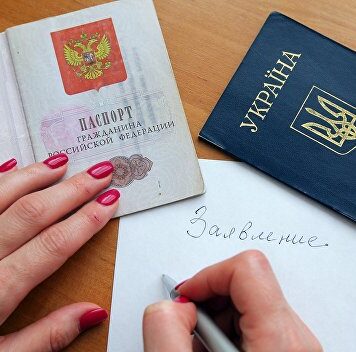 ПАСПОРТ
ГРАЖДАНИНА
РОССИЙСКОЙ ФЕДЕРАЦИИ
УКРАЇНА
Заявление